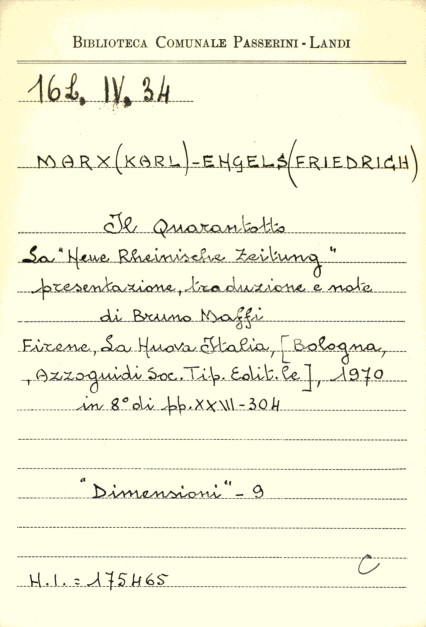 BIBLIOTECA COMUNALE PASSERINI - LANDI
16L. IV. 34
MARX (KARL) - ENGELS (FRIEDRICH)
Il Quarantotto
La "Neue Rheinische Zeitung"
presentazione, traduzione e note
di Bruno Maffi
Firene, La Nuova Italia, [Bologna,
, Azzoguidi Soc. Tip. Edit.le], 1970
in 8° di pp. XXVII-304
"Dimensioni" - 9
C
N.I. = 175465